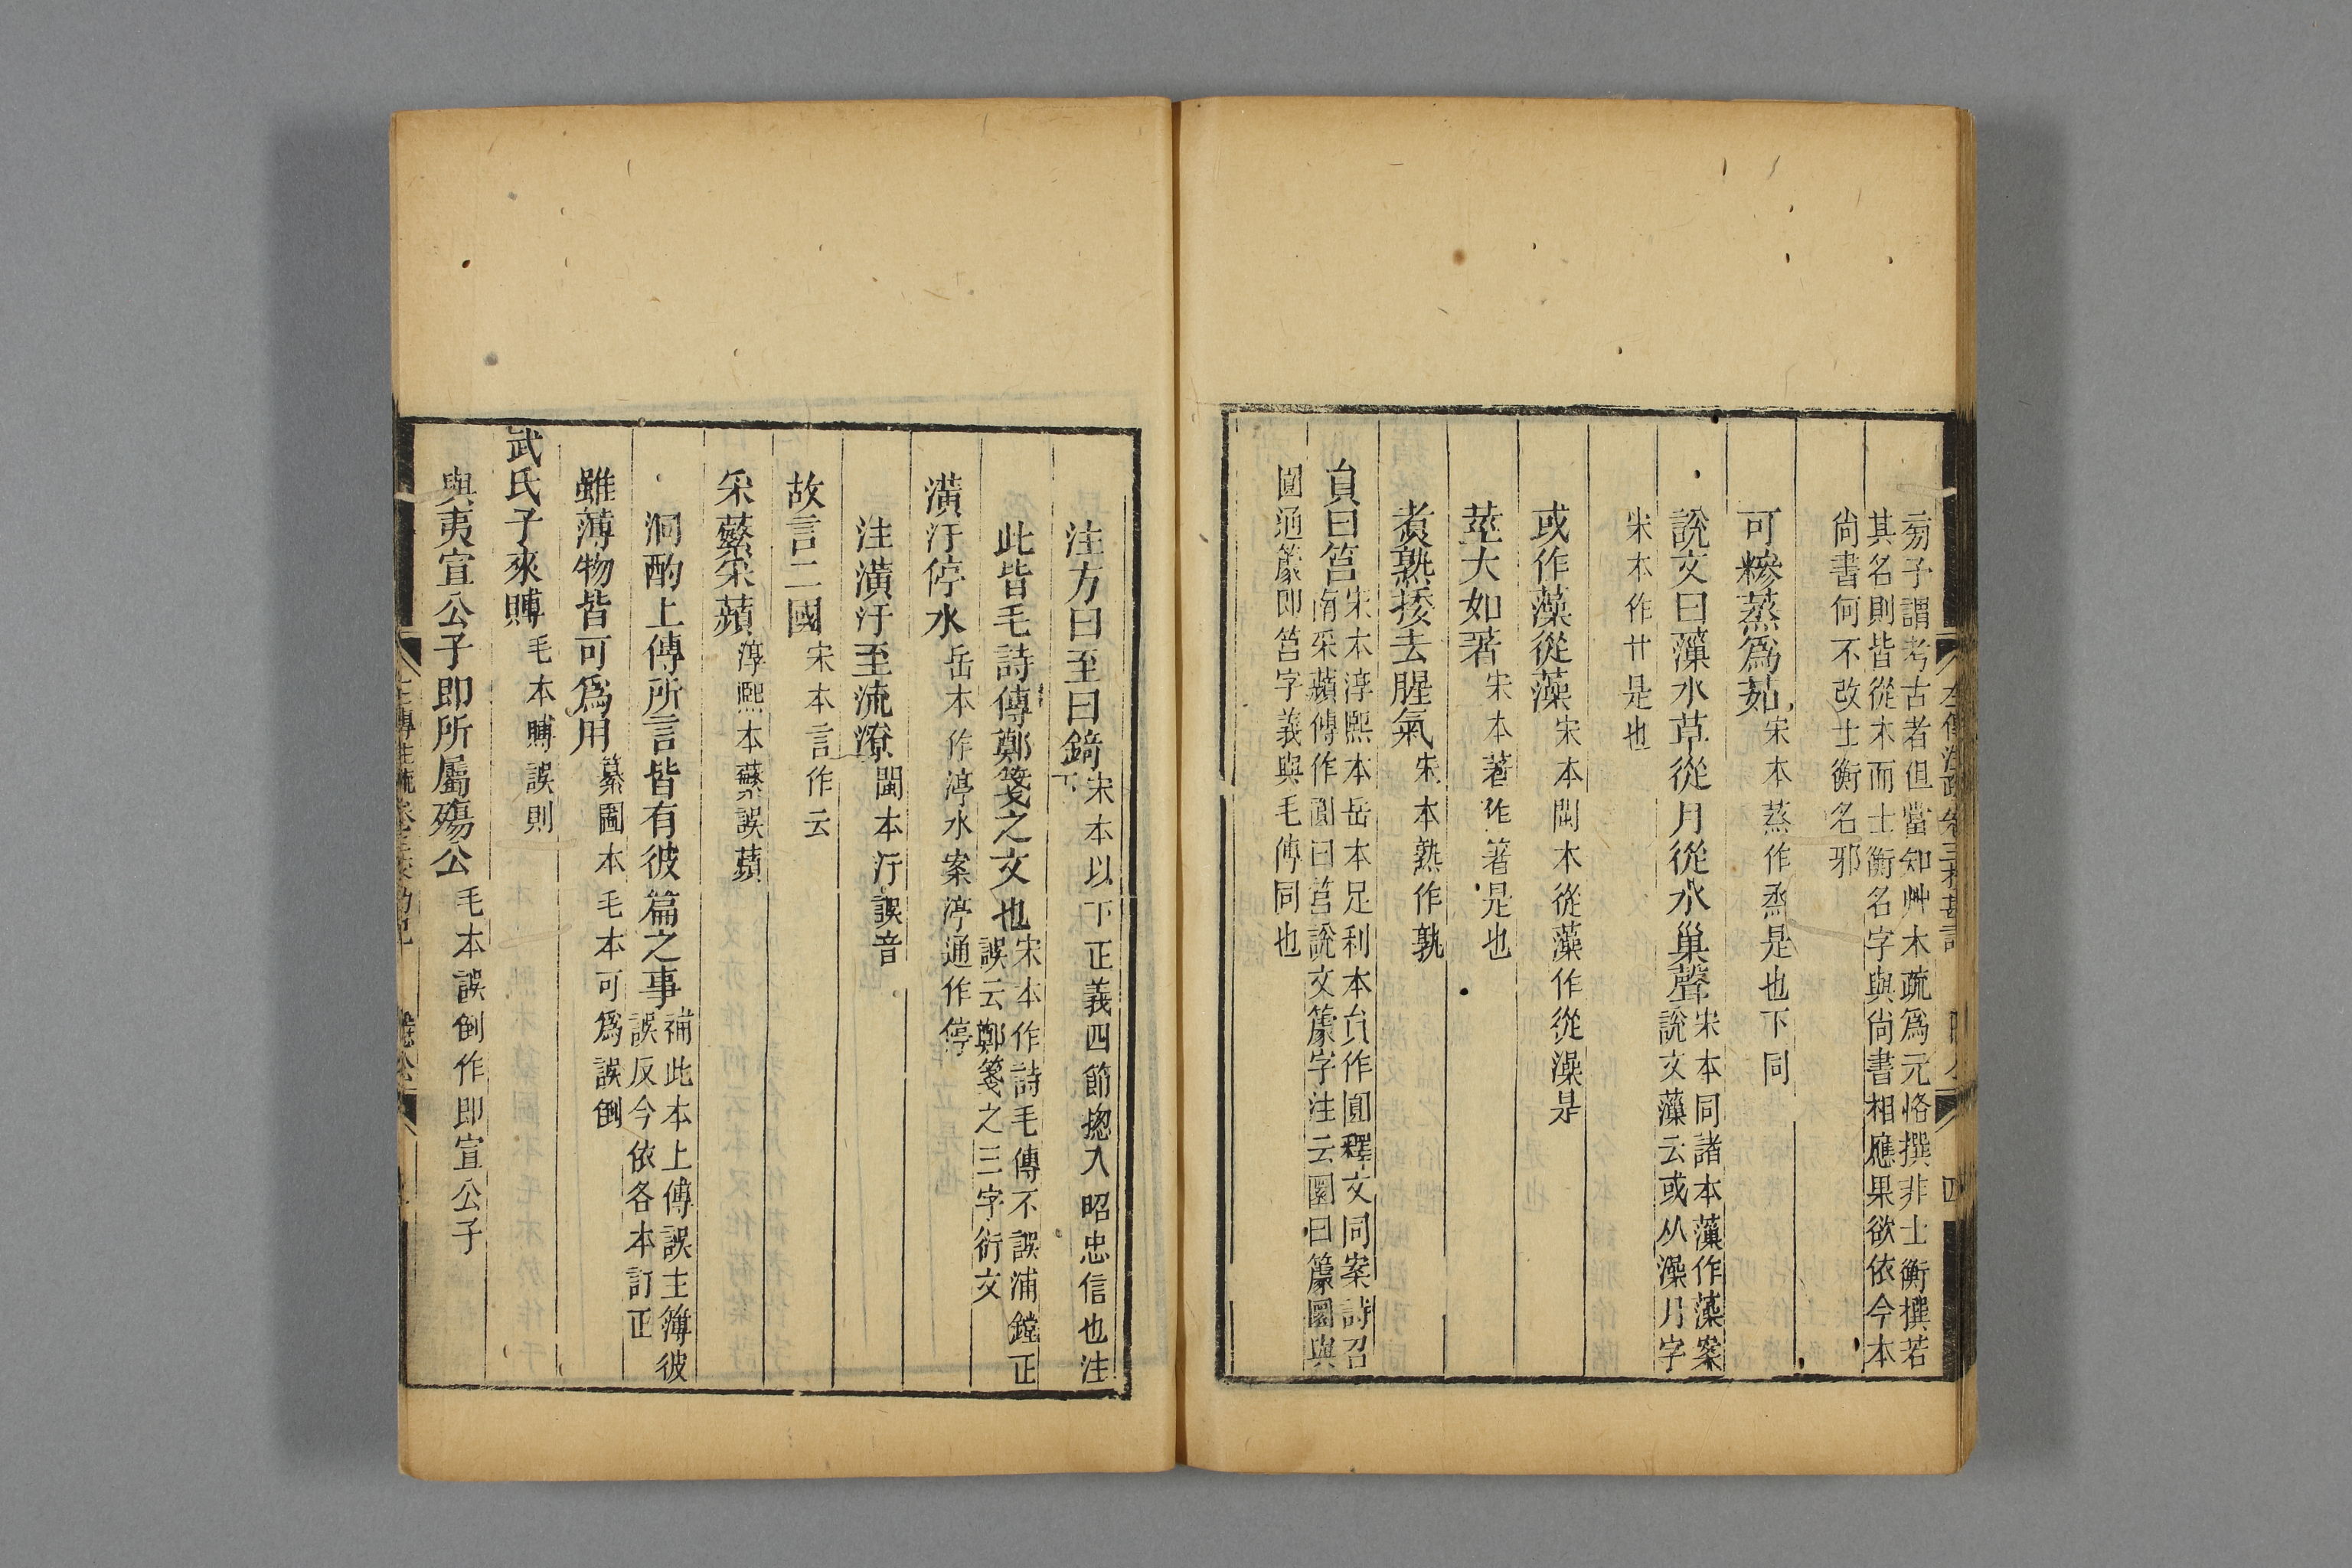 芴子謂考古者但當知艸木疏爲元恪撰非士衡撰若
其名則皆從木而士衡名字與尙書相應果欲依今本
尙書何不改士衡名邪
可糝蒸爲茹宋本蒸作烝是也下同
說文曰藻水草從月從水巢聲宋本同諸本薻作藻案
說文薻云或从澡乃字
宋本作廿是也
或作藻從藻宋本閩本從藻作從澡是
莖大如著宋本著作箸是也
煮熟挼去腥氣宋本熟作孰
員曰筥宋本淳熙本岳本足利本員作圓釋文同案詩召
南采蘋傳作圓曰筥說文籇字注云圜曰籇圜與
圓通籇即筥字義與毛傳同也
注方曰至曰錡宋本以下正義四節揔入昭忠信也注
下
此皆毛詩傳鄭箋之文也宋本作詩毛傳不誤浦鏜正
誤云鄭箋之三字衍文
潢汙停水岳本作渟水案渟通作停
注潢汙至流潦閩本汙誤音
故言二國宋本言作云
采蘩采蘋淳熙本蘩誤蘋
泂酌上傳所言皆有彼篇之事補此本上傳誤主簿彼
誤反今依各本訂正
雖薄物皆可爲用纂圖本毛本可爲誤倒
武氏子來賻毛本賻誤則
與夷宣公子即所屬殤公毛本誤倒作即宣公子